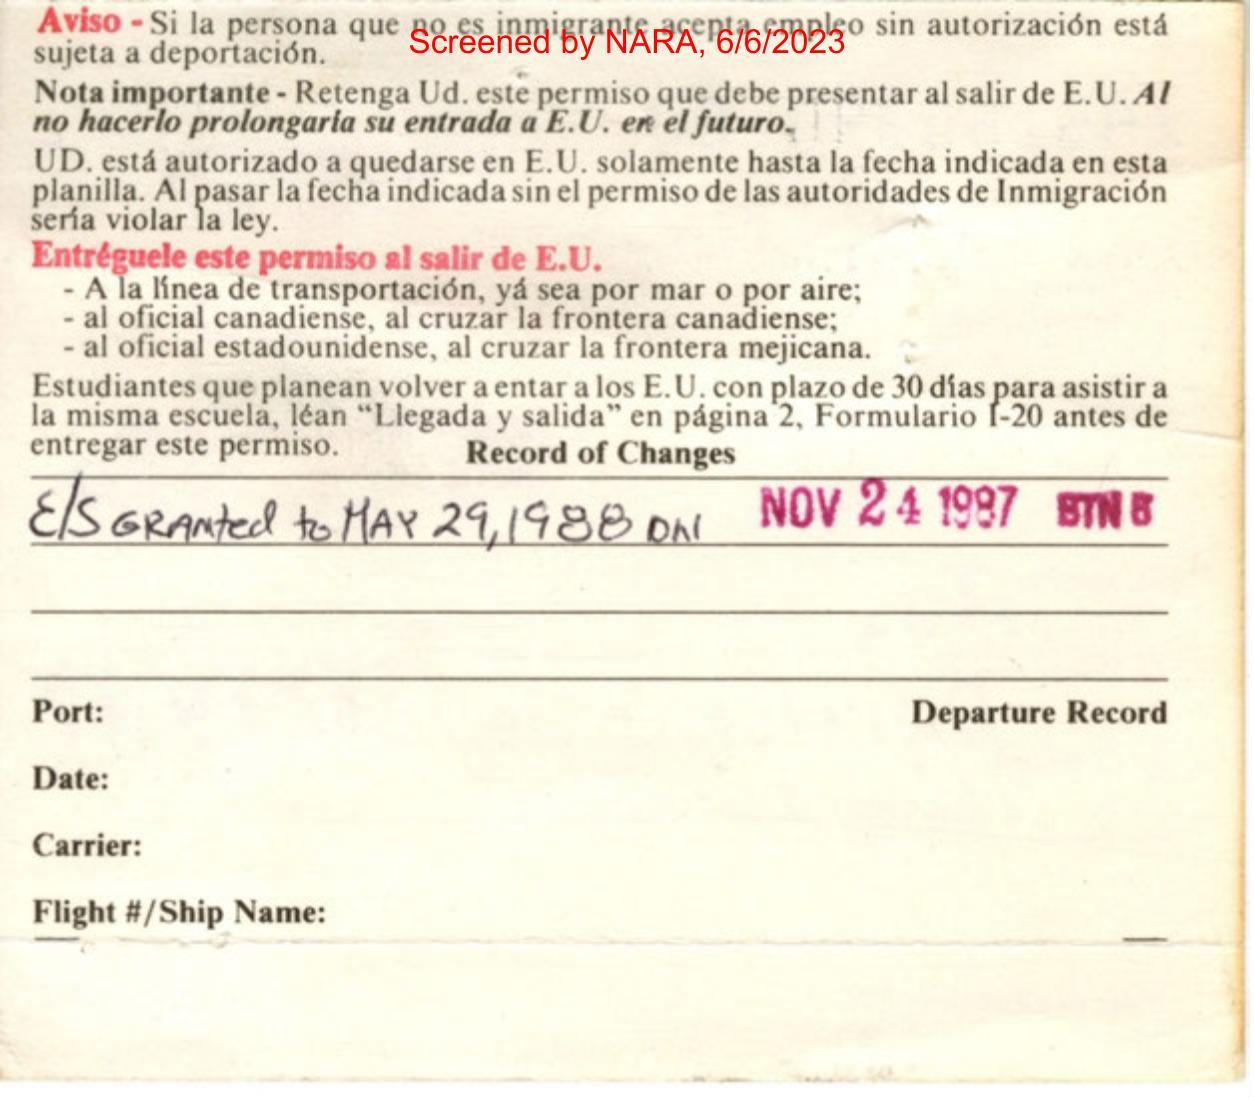 Aviso - Si la persona que no es inmigrante acepta empleo sin autorización está
Screened by NARA, 6/6/2023
sujeta a deportación.
Nota importante - Retenga Ud. este permiso que debe presentar al salir de E.U. Al
no hacerlo prolongaría su entrada a E.U. en el futuro.
UD. está autorizado a quedarse en E.U. solamente hasta la fecha indicada en esta
planilla. Al pasar la fecha indicada sin el permiso de las autoridades de Inmigración
sería violar la ley.
Entréguele este permiso al salir de E.U.
- A la línea de transportación, yá sea por mar o por aire;
- al oficial canadiense, al cruzar la frontera canadiense;
- al oficial estadounidense, al cruzar la frontera mejicana.
Estudiantes que planean volver a entar a los E.U. con plazo de 30 días para asistir a
la misma escuela, léan “Llegada y salida” en página 2, Formulario I-20 antes de
entregar este permiso.
Record of Changes
E/S GRANted to MAY 29, 1988 NOV 24 1987
Port: Departure Record
Date:
Carrier:
Flight #/Ship Name: